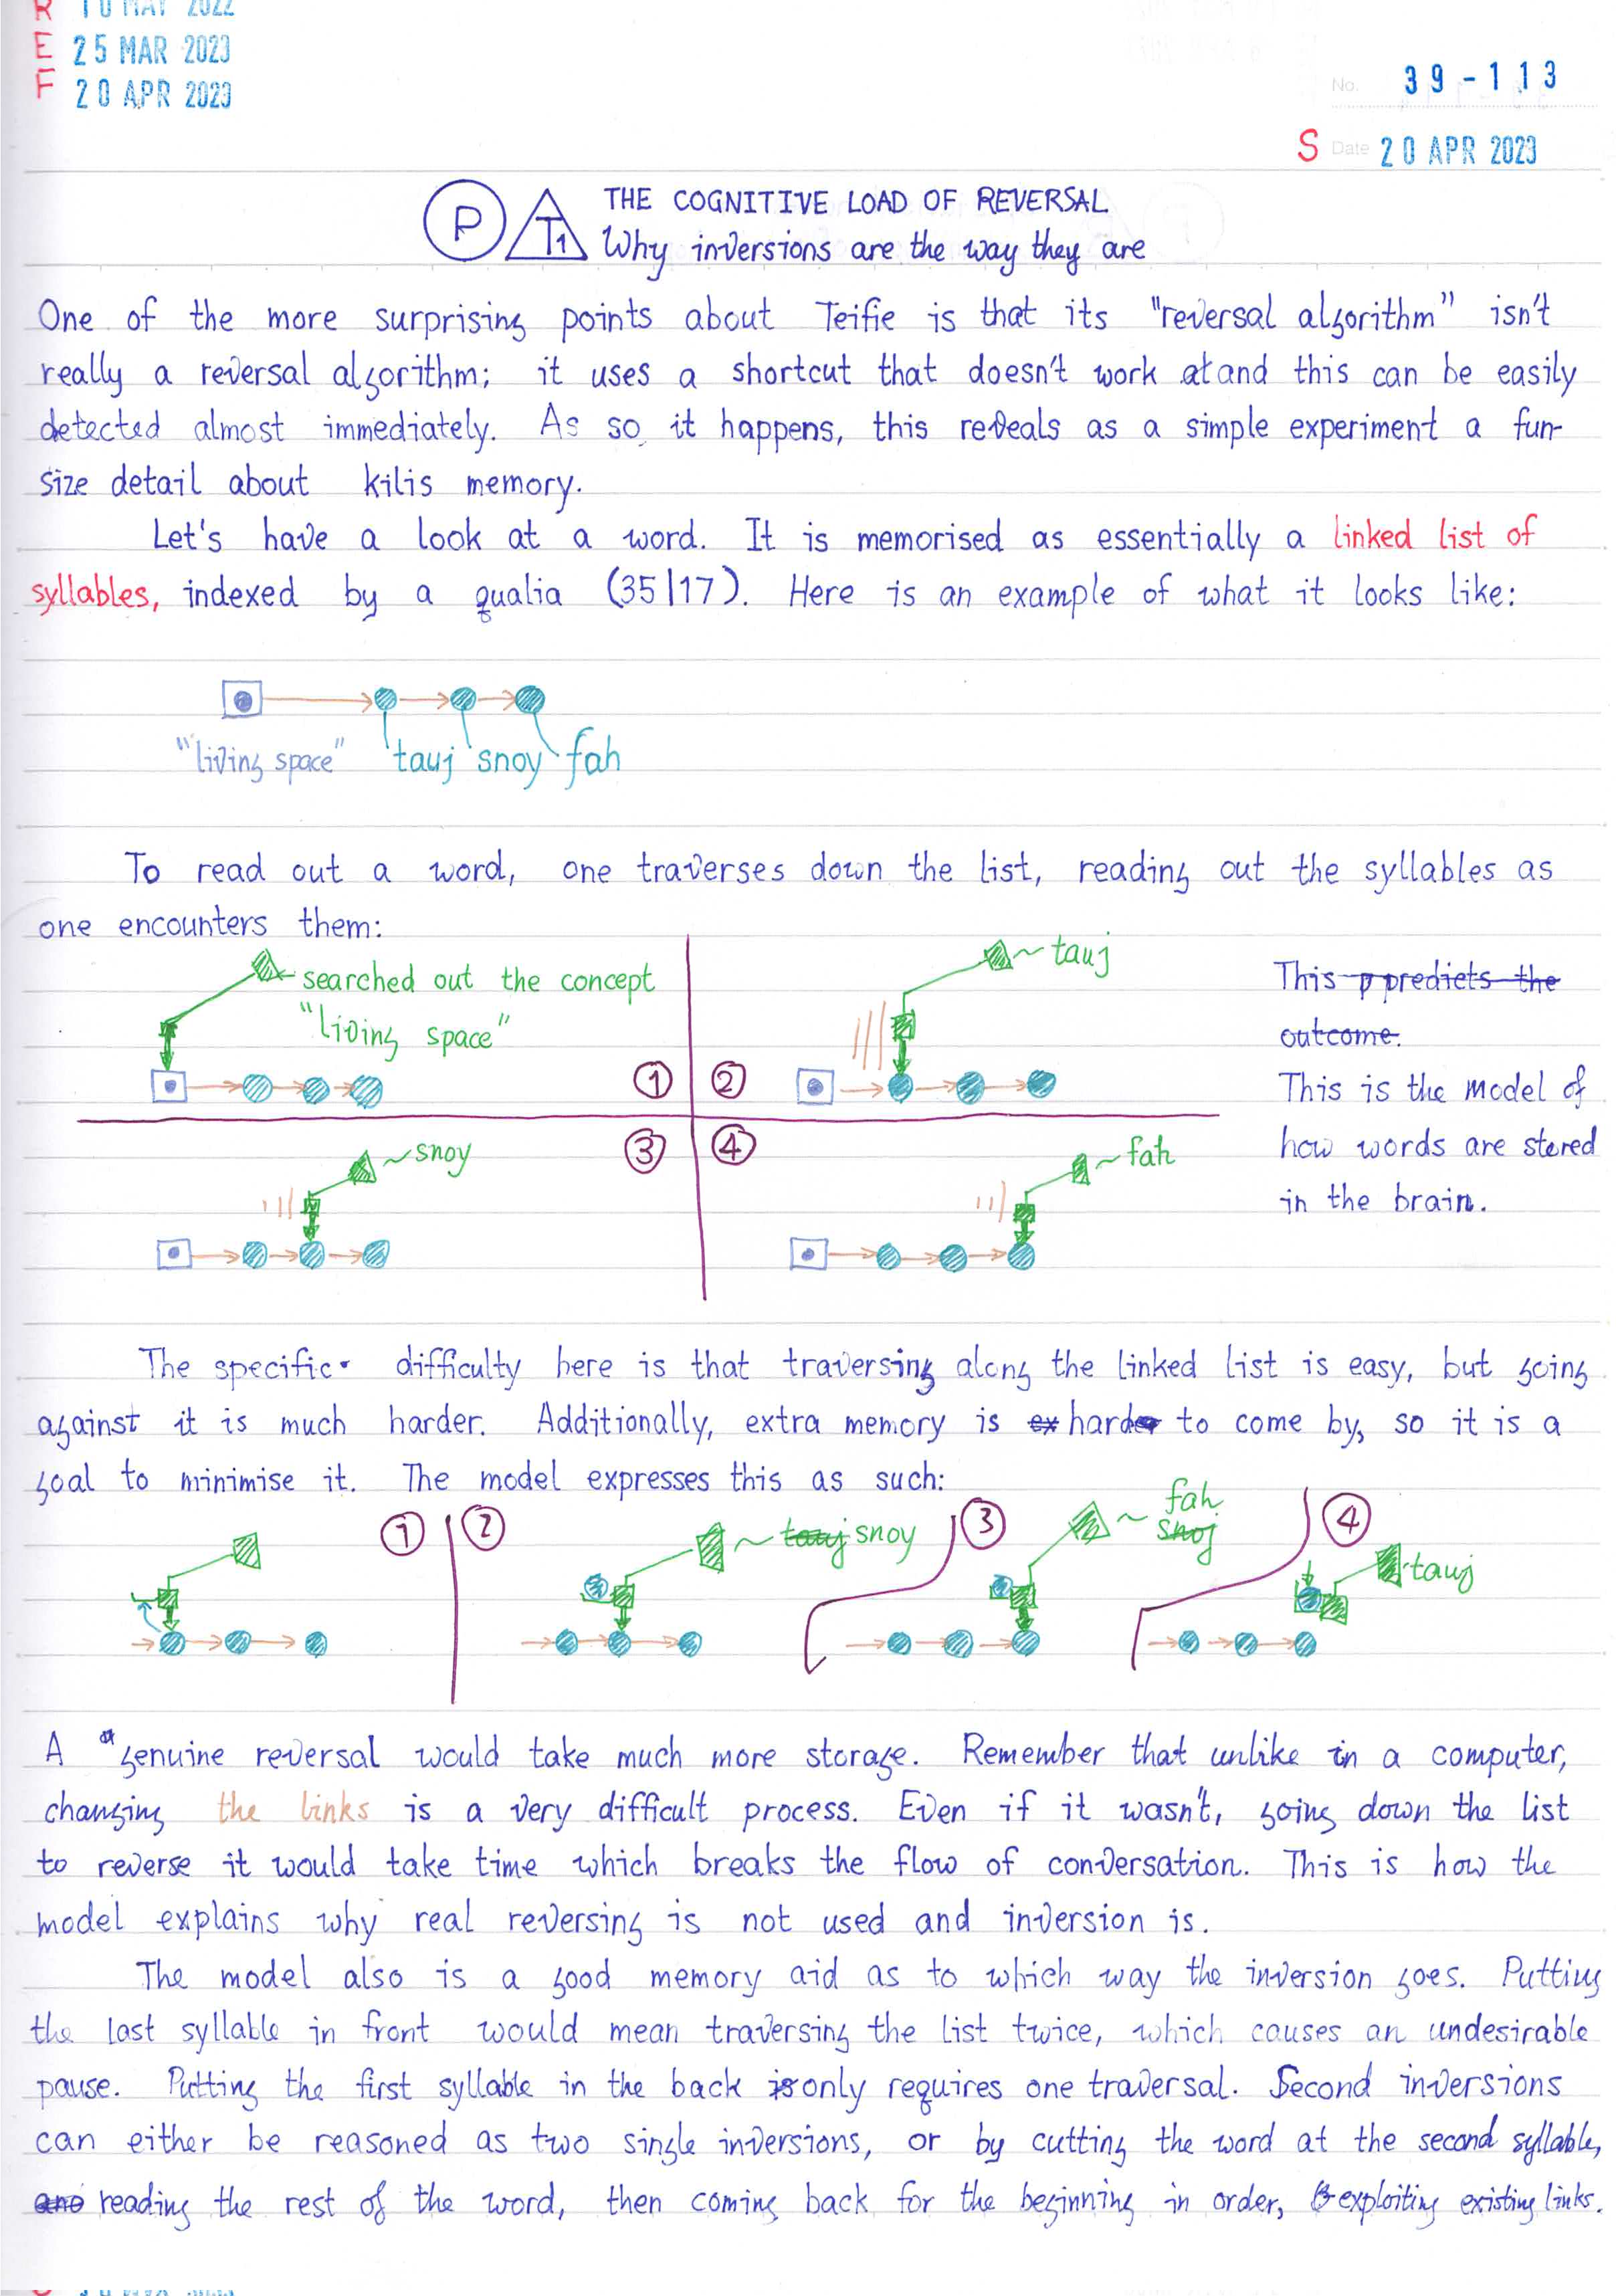 R 10 MAY 2022
E 25 MAR 2023
F 20 APR 2023
No. 39-113
S Date 20 APR 2023
P T1 THE COGNITIVE LOAD OF REVERSAL
Why inversions are the way they are
One of the more surprising points about Teifie is that its "reversal algorithm" isn't
really a reversal algorithm; it uses a shortcut that doesn't work and this can be easily
detected almost immediately. As so it happens, this reveals as a simple experiment a fun-
size detail about kilis memory.
Let's have a look at a word. It is memorised as essentially a linked list of
syllables, indexed by a qualia (35|17). Here is an example of what it looks like:
"living space" tauj snoy fah
To read out a word, one traverses down the list, reading out the syllables as
one encounters them:
searched out the concept
"living space"
1
2
~tauj
This p predicts the
outcome.
This is the model of
how words are stored
in the brain.
3
~snoy
4
~fah
The specific difficulty here is that traversing along the linked list is easy, but going
against it is much harder. Additionally, extra memory is ex harder to come by, so it is a
goal to minimise it. The model expresses this as such:
1
2
~ tauj snoy
3
~ fah
snoj
4
tauj
A genuine reversal would take much more storage. Remember that unlike in a computer,
changing the links is a very difficult process. Even if it wasn't, going down the list
to reverse it would take time which breaks the flow of conversation. This is how the
model explains why real reversing is not used and inversion is.
The model also is a good memory aid as to which way the inversion goes. Putting
the last syllable in front would mean traversing the list twice, which causes an undesirable
pause. Putting the first syllable in the back only requires one traversal. Second inversions
can either be reasoned as two single inversions, or by cutting the word at the second syllable,
and reading the rest of the word, then coming back for the beginning in order, exploiting existing links.